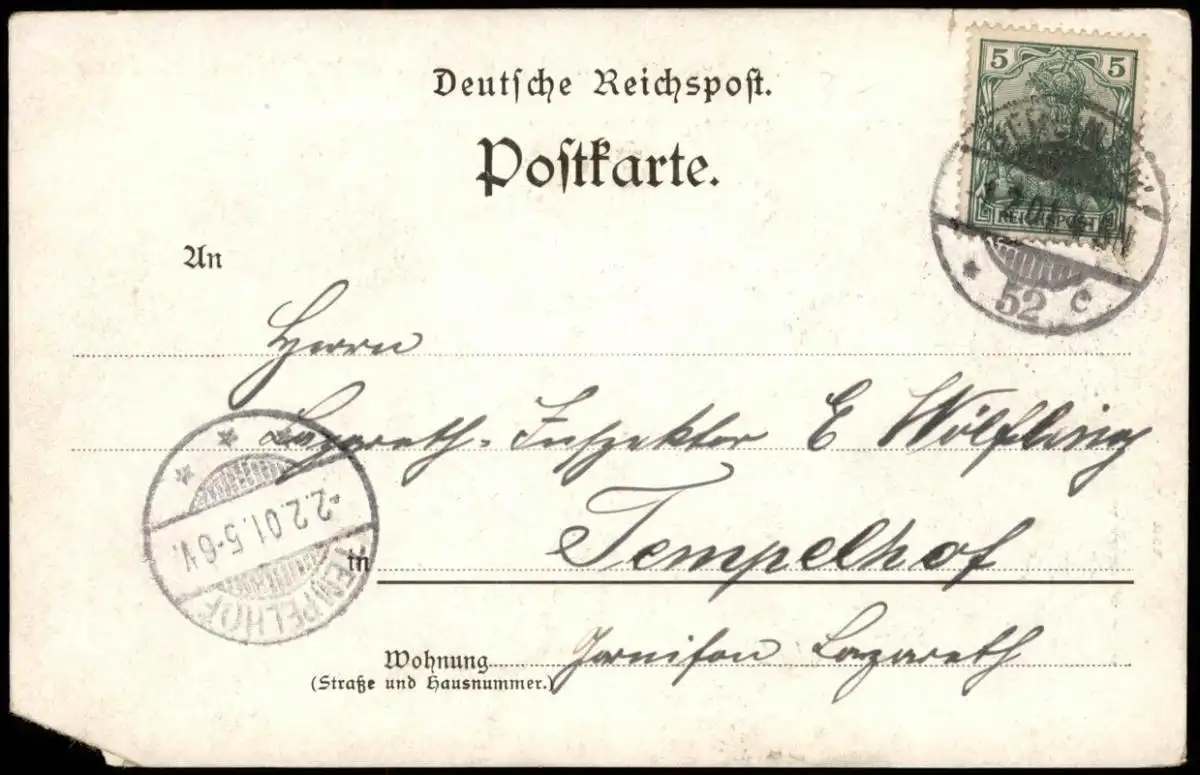 Deutsche Reichspost.
Postkarte.
5 5
REICHSPOST
2.01
52 c
An
Herrn
Lazareth-Inspektor E Wölfling
in Tempelhof
Wohnung Garnison Lazareth
(Straße und Hausnummer.)
TEMPELHOF
2.2.01. 5-6 N.